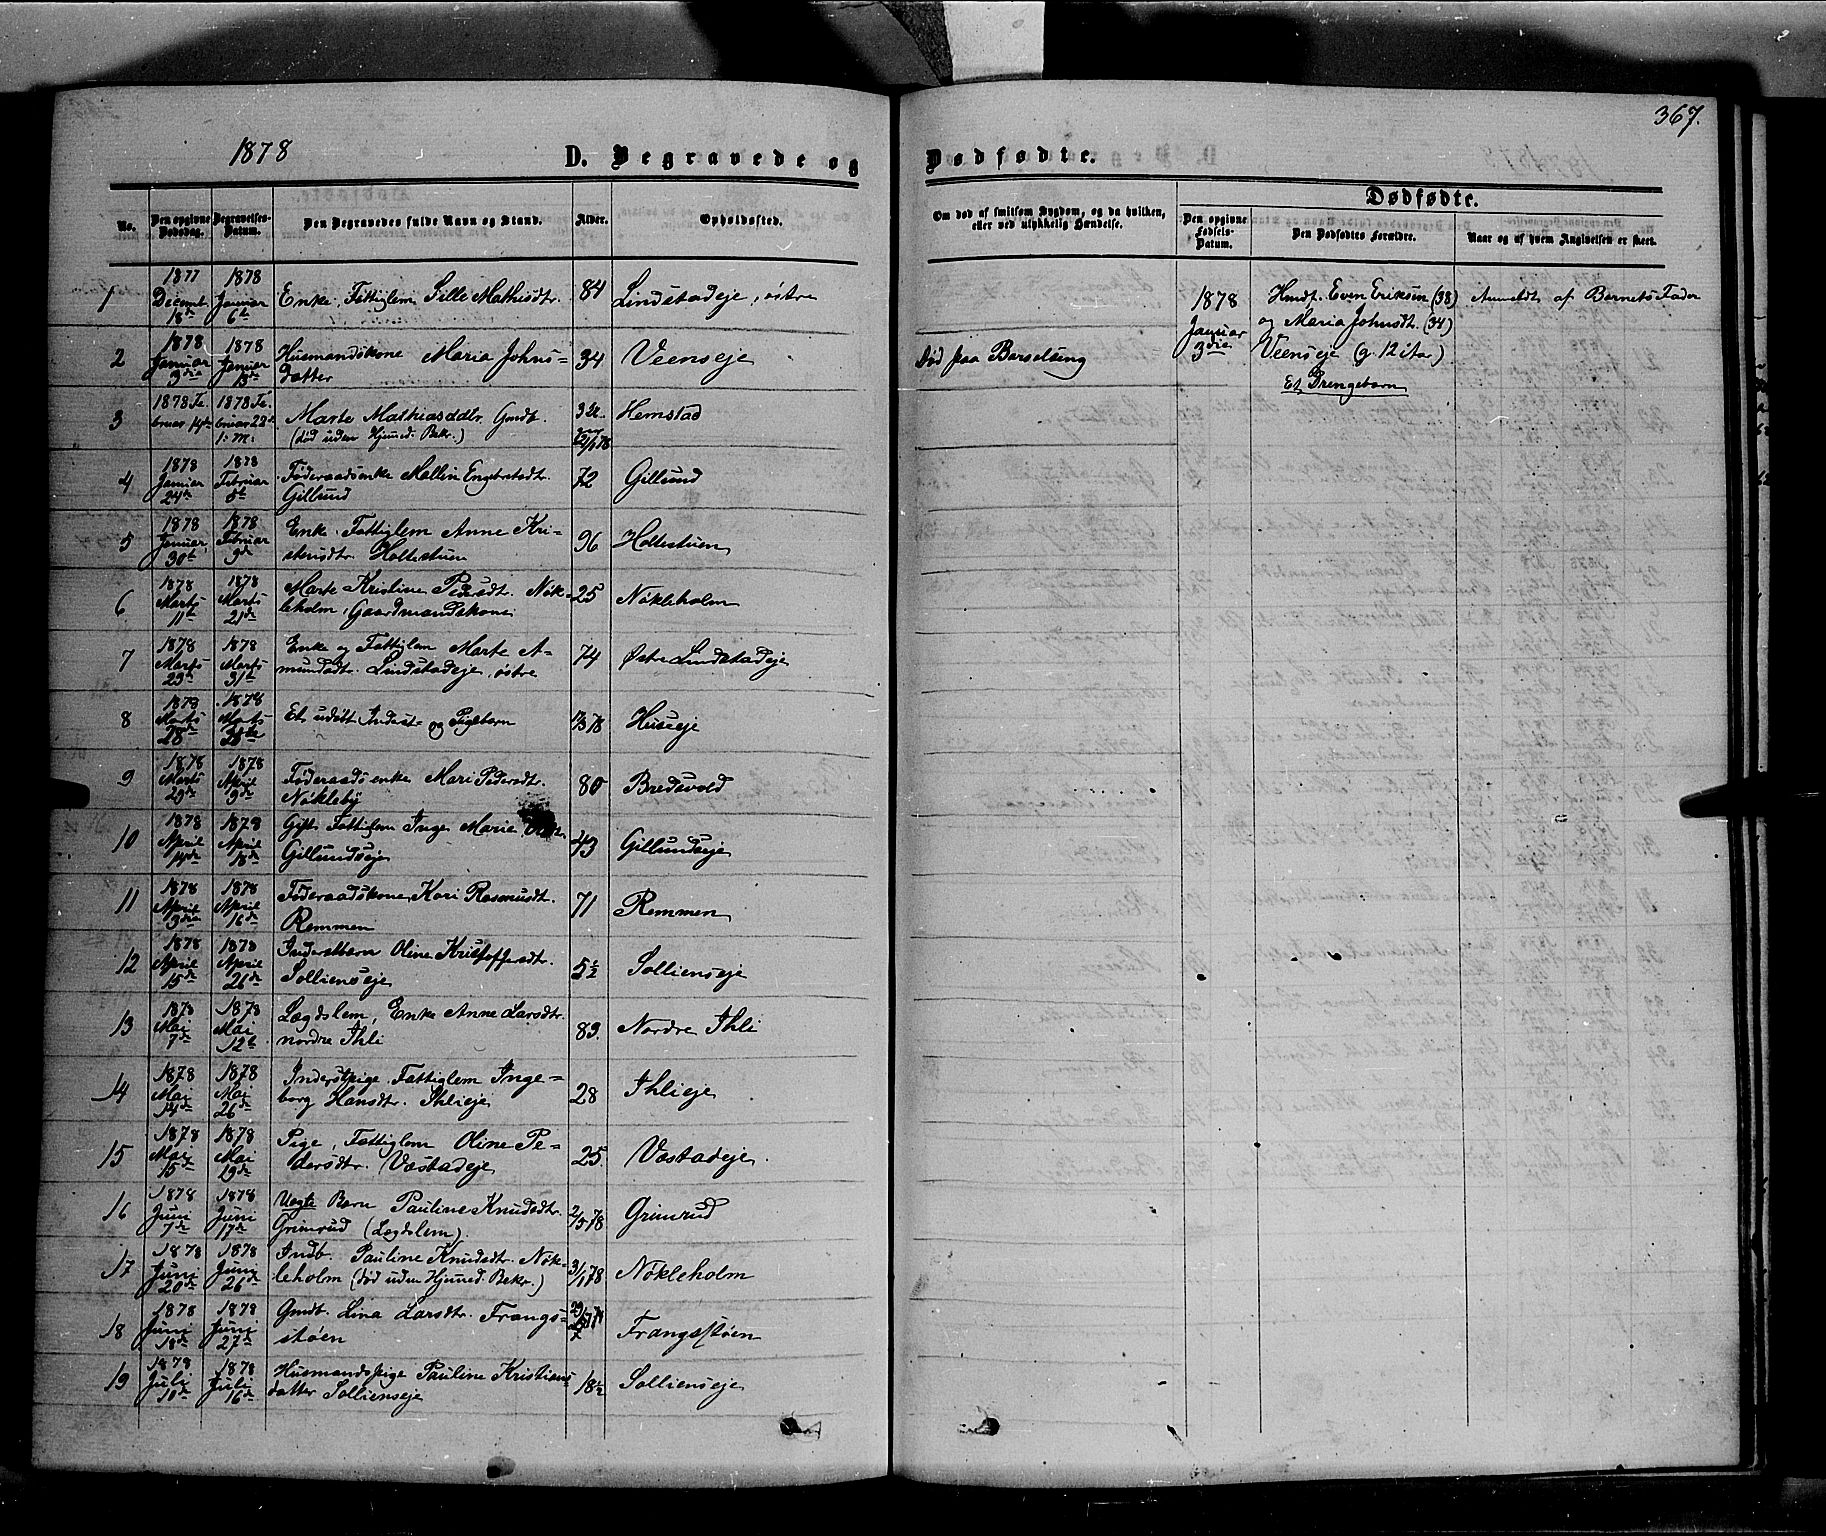 367.
1878
D. Begravede og Dødfødte.
No.
Den opgivne Dødsdag.
Begravelses-Datum.
Den Begravedes fulde Navn og Stand.
Alder.
Opholdssted.
Om død af smitsom Sygdom, og da hvilken,
eller ved ulykkelig Hændelse.
Dødfødte.
Den opgivne Fødsels-Datum.
Den Dødfødtes Forældre.
Naar og af hvem Angivelsen er skeet.
1 1877 Decemb 18de 1878 Januar 6te Enke, Fattiglem Sille Mathisdtr. 84 Lindstadeje, østre
1878 Januar 3die
Husf. Even Eriksen (38)
og Maria Johnsdt. (34)
Veenseje (g. 12 i Aar)
Et Drengebarn
Anmeldt af Barnets Fader
2 1878 Januar 3die 1878 Januar 13de Husmandskone Maria Johns=
datter 34 Veenseje Død paa Barselseng
3 1878 Februar 14de 1878 Februar 22de Marte Mathiasddtr. Gmdb.
(død uden Hjemmed. Bekr.) Hemstad
4 1878 Januar 24de 1878 Februar 5te Føderaadsenke Mallin Engebretsdt.
Gillund 72 Gillund
5 1878 Januar 30te 1878 Februar 9de Enke, Fattiglem Anne Kri=
stensdtr. Holtestuen 96 Holtestuen
6 1878 Marts 11te 1878 Marts 21de Marte Kristine Pedersdt. Nøk=
leholm, Gaardmandskone 25 Nøkleholm
7 1878 Marts 23de 1878 Marts 31te Enke og Fattiglem Marte A=
mundsdt. Lindstadeje, østre 74 Østre Lindstadeje
8 1878 Marts 28de 1878 Marts Et udøbt Inderst og Pigebarn Huseeje
9 1878 Marts 29de 1878 April 9de Føderaadsenke Mari Pedersdtr.
Nøkleby 80 Bredevold
10 1878 April 14de 1878 April 18de Gift Fattiglem Inge Marie
Gillundseje 43 Gillundseje
11 1878 April 3die 1878 April 16de Føderaadskone Kari Rasmusdt.
Remmen 71 Remmen
12 1878 April 15de 1878 April 26de Inderstbarn Oline Kristoffersdtr.
Sollienseje 5½ Sollienseje
13 1878 Mai 7de 1878 Mai 12te Lægdslem, Enke Anne Larsdtr.
nordre Ihli 83. Nordre Ihli
14 1878 Mai 14de 1878 Mai 26de Inderstpige, Fattiglem Inge=
borg Hansdtr. Ihlieje 28 Ihlieje
15 1878 Mai 15de 1878 Mai 19de Pige, Fattiglem Oline Pe=
dersdtr. Væstadeje 25. Væstadeje.
16 1878 Juni 7de 1878 Juni 17de Uægte Barn Pauline Knudsdtr.
Grimrud (Lægdslem). 2/5 78 Grimrud
17 1878 Juni 20de 1878 Juni 26de Indb. Pauline Knudsdt. Nøk=
leholm (død uden Hjemmed. Bekr.) 3/1 78 Nøkleholm
18 1878 Juni 18de 1878 Juni 27de Gmdb. Lina Larsdtr. Frangs=
støen Frangsstøen
19 1878 Juli 10de 1878 Juli 16de Husmandspige Pauline Kristians
datter Sollienseje 18½ Sollienseje